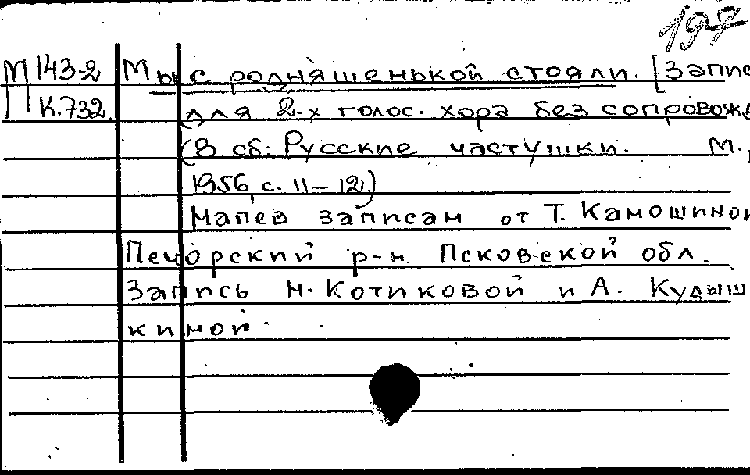 197
М 143-2 Мы с родняшенькой стояли. [Запис
К.732. для 2-х голос. хора без сопровожд
(В сб: Русские частушки. М.,
1956, с. 11-12)
Напев записан от Т. Камошиной
Печорский р-н Псковской обл.
Запись Н. Котиковой и А. Кудыш
киной.